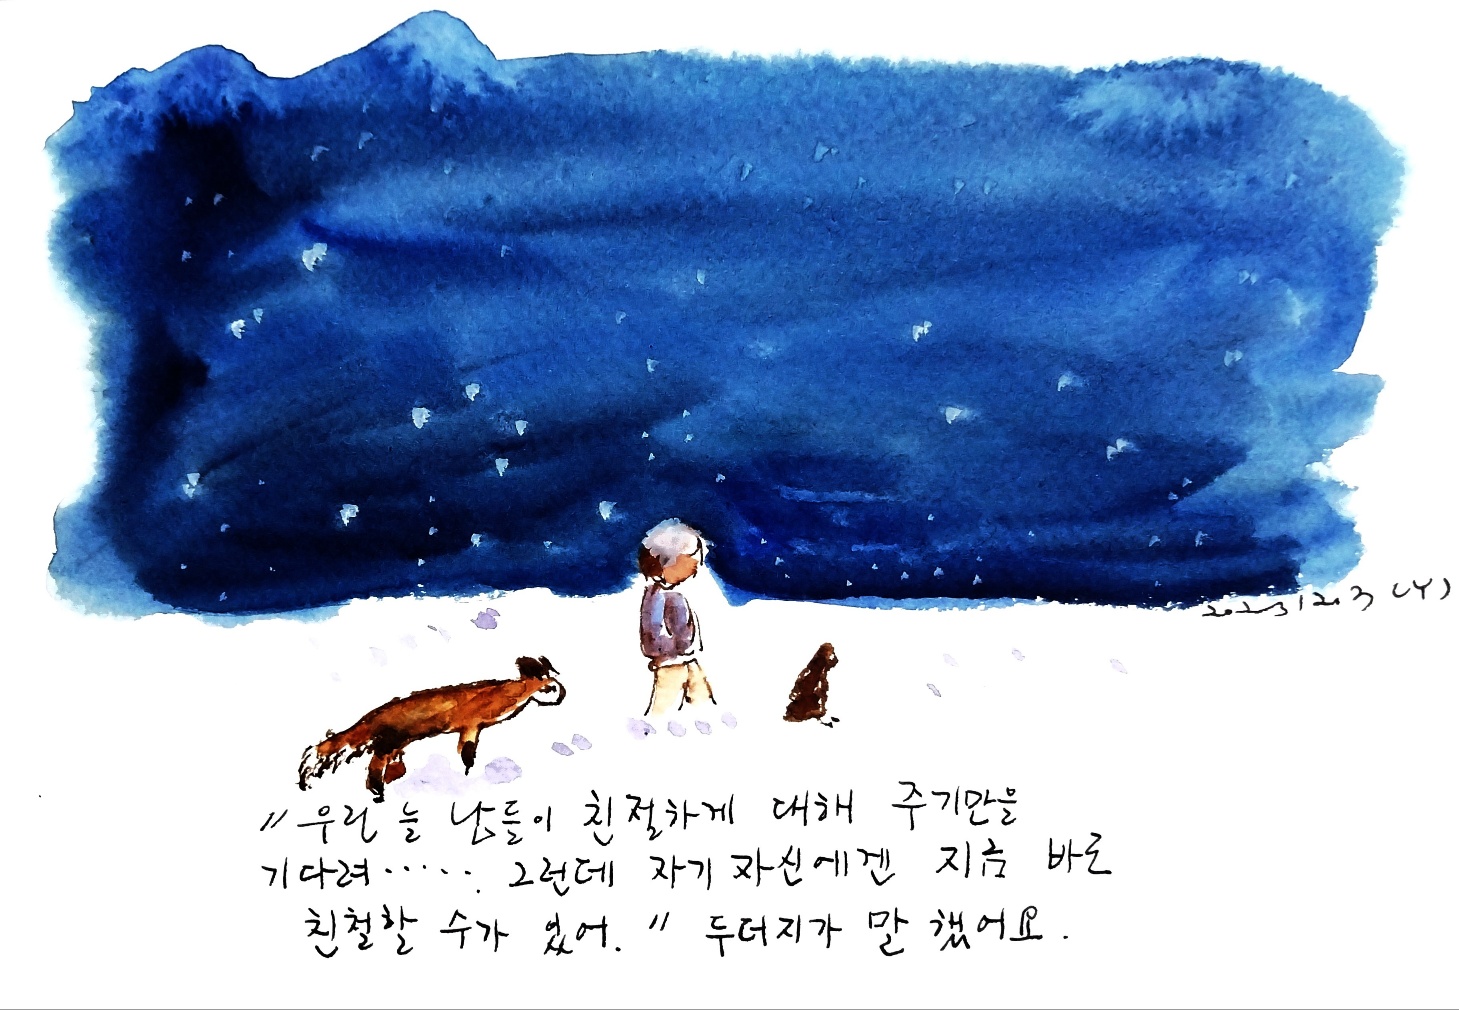 20231203 (Y)
"우린 늘 남들이 친절하게 대해 주기만을
기다려·····. 그런데 자기 자신에겐 지금 바로
친철할 수가 있어." 두더지가 말 했어요.